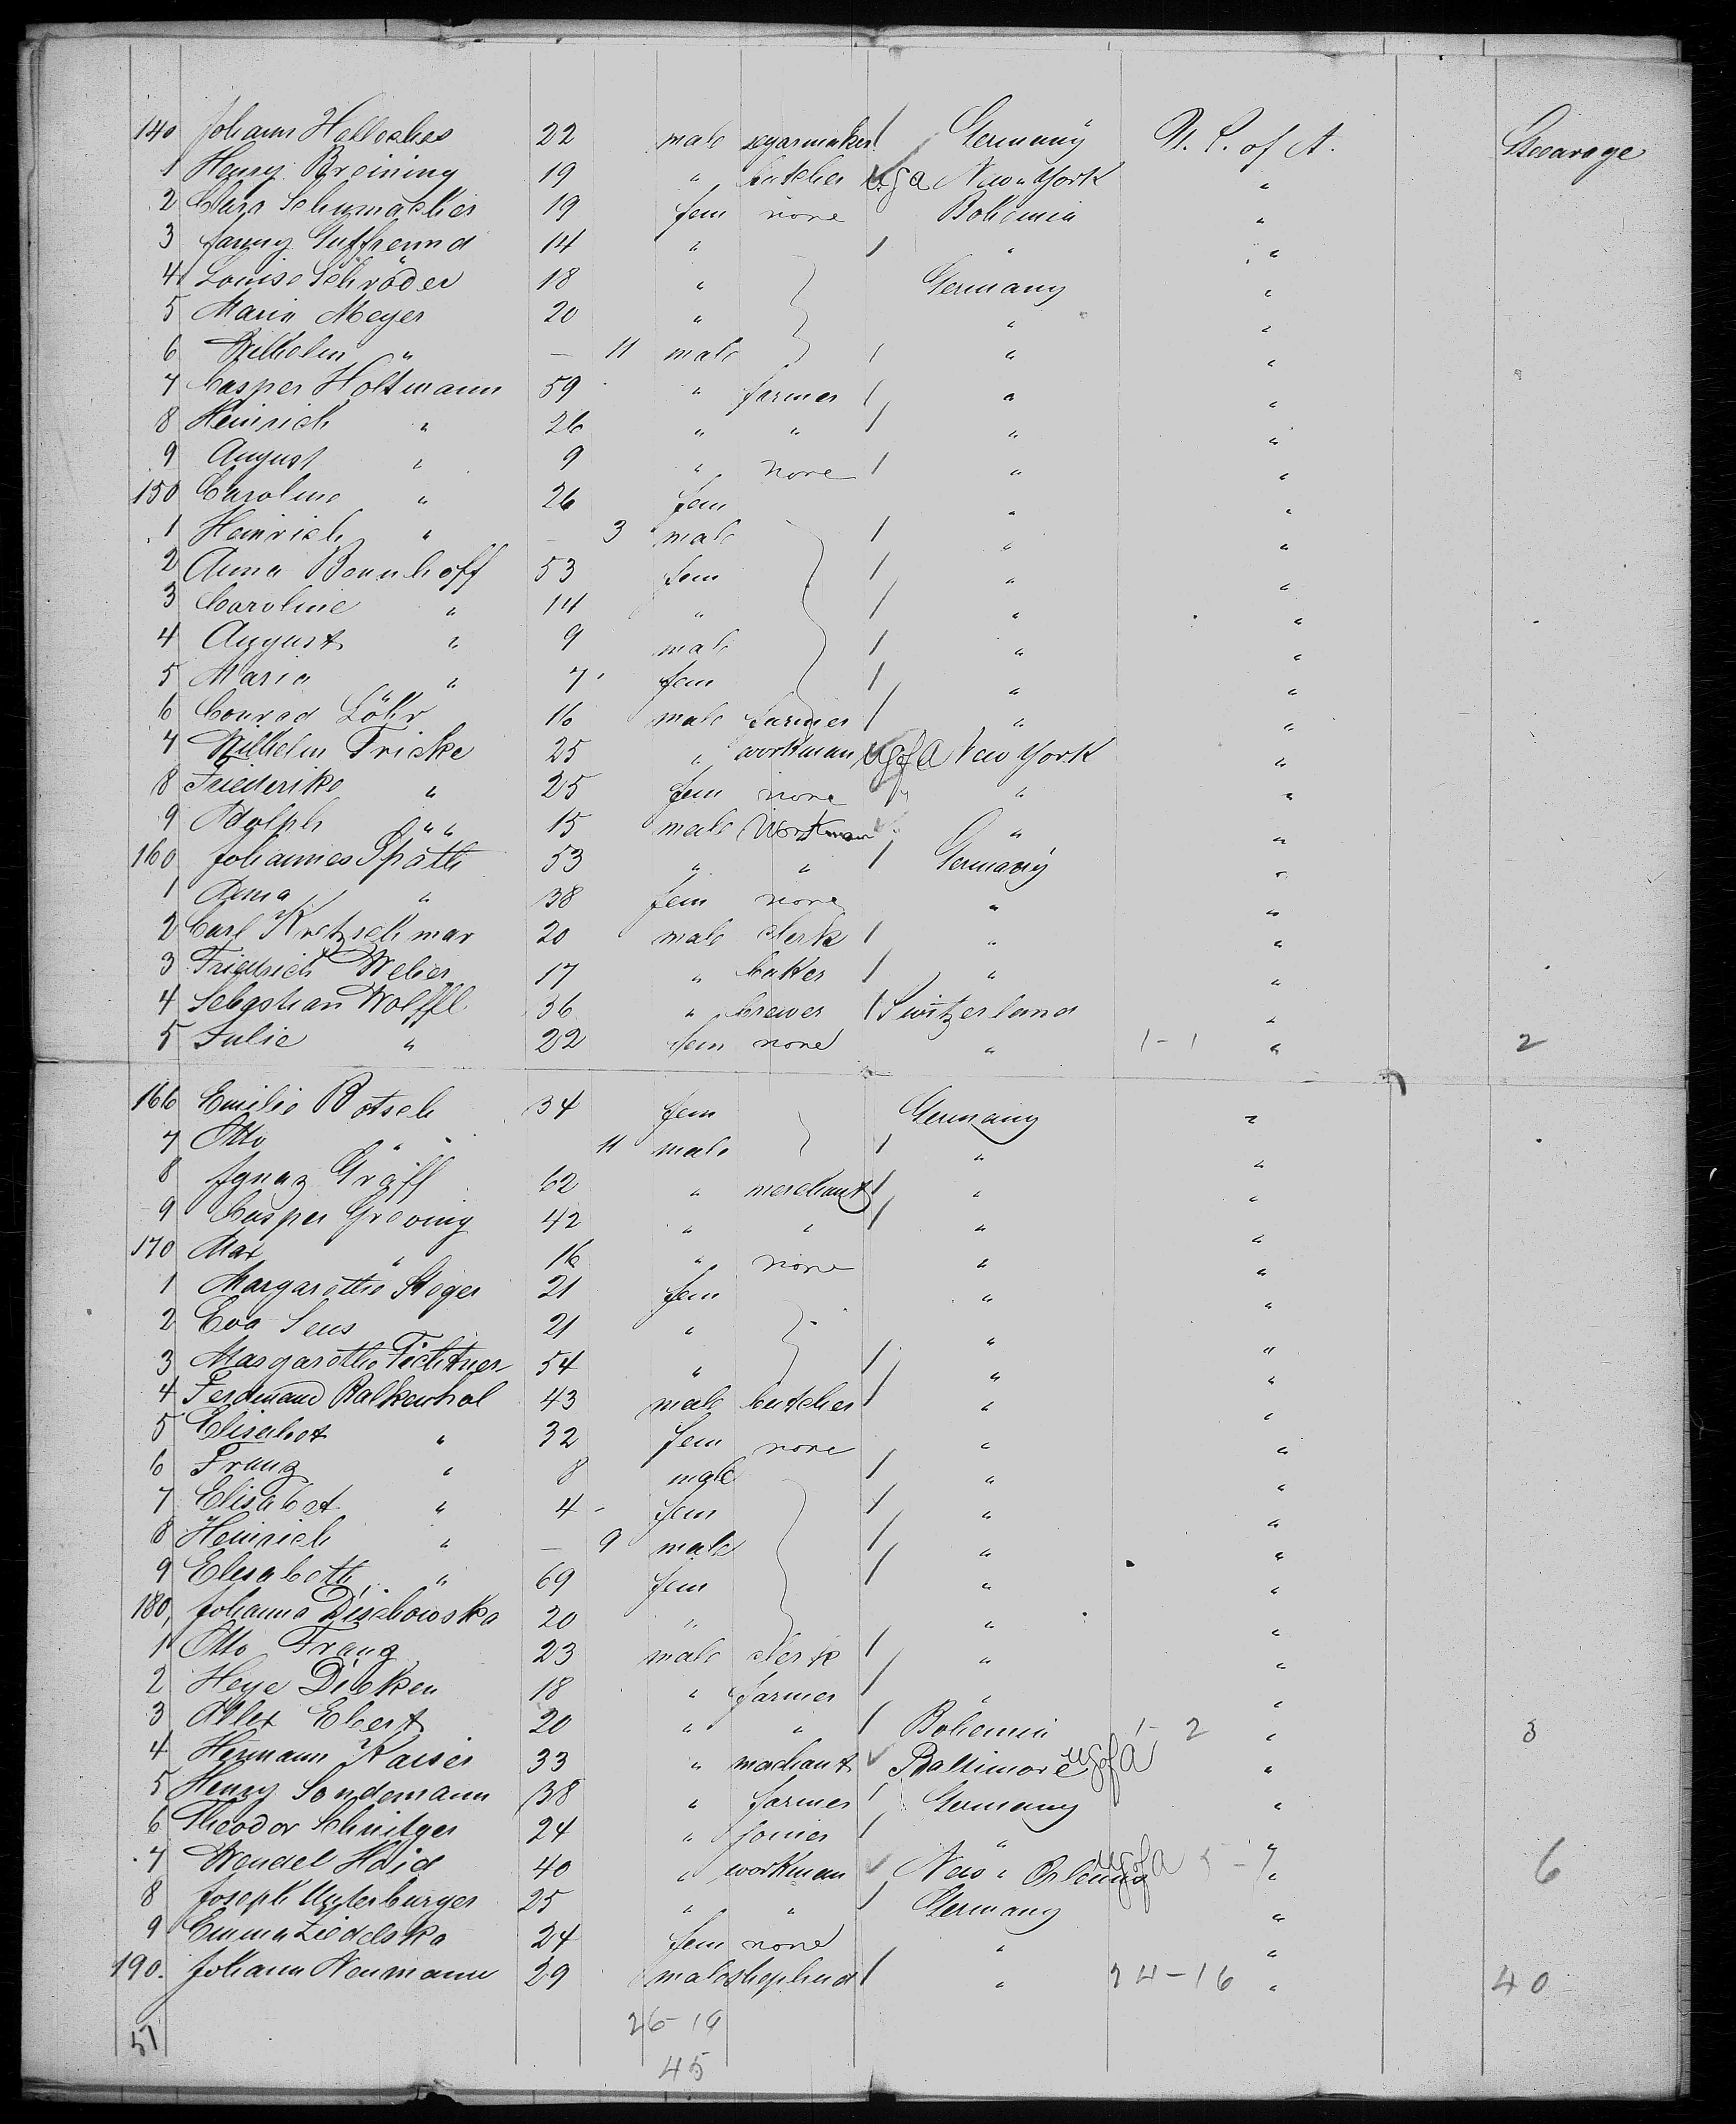 140 Johann 22 male segarmaker / Germany U. S. of A. Steerage
1 Henry Breining 19 " butcher New-York "
2 Clara Schumacher 19 fem none Bohemia "
3 Fanny Gutfreund 14 " / " "
4 Louise Schröder 18 " Germany "
5 Maria Meyer 20 " " "
6 Wilhelm " — 11 male / " "
7 Casper Holtmann 59 " farmer / " "
8 Heinrich " 26 " " / " "
9 August " 9 " none / " "
150 Caroline " 26 fem " "
1 Heinrich " — 3 male / " "
2 Anna Bennhoff 53 fem / " "
3 Caroline " 14 " / " "
4 August " 9 male / " "
5 Maria " 7 fem / " "
6 Conrad Löhr 16 male farmer / " "
7 Wilhelm Fricke 25 " workman New York "
8 Friederike " 25 fem none " "
9 Adolph " " 15 male Workman " "
160 Johannes Späth 53 " " / Germany "
1 Anna " 38 fem none " "
2 Carl Kretzschmar 20 male clerk / " "
3 Friedrich Weber 17 " baker / " "
4 Sebastian Wölffl 36 " brewer / Switzerland "
5 Julie " 22 fem none " 1-1 " 2
166 Emilie Botsch 34 fem Germany "
7 Otto " 11 male / " "
8 Ignaz Gräff 62 " merchant / " "
9 Casper Greving 42 " " / " "
170 Max " 16 " none " "
1 Margarethe Steger 21 fem " "
2 Eva Sens 21 " " "
3 Margarethe Fichtner 54 " / " "
4 Ferdinand Balkenhol 43 male butcher / " "
5 Elisabet " 32 fem none " "
6 Franz " 8 male / " "
7 Elisabet " 4 fem / " "
8 Heinrich " — 9 male / " "
9 Elisabeth " 69 fem / " "
180 Johanna 20 " " "
1 Otto Franz 23 male clerk / " "
2 Heye Dirken 18 " farmer / " "
3 Alex Ebert 20 " " / Bohemia 1-2 " 3
4 Hermann Kaiser 33 " Baltimore "
5 Henry Sondemann 38 " farmer / Germany "
6 Theodor Schnitger 24 " / " "
7 Wendel Haid 40 " workman New-Orleans " 6
8 Joseph Unterburger 25 " " / Germany "
9 Emma 24 fem none " "
190. Johann Neumann 29 male shepherd / " 24-16 " 40
51 26-19
45